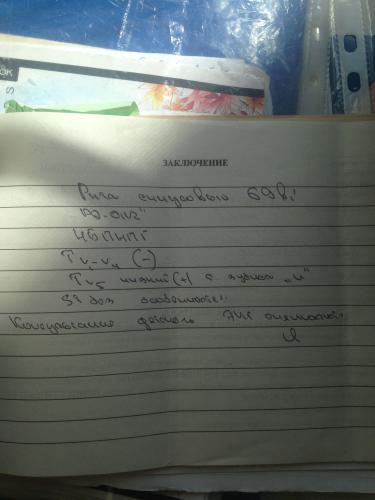 ЗАКЛЮЧЕНИЕ
Ритм синусовый 69 в 1'
PQ-0,12"
НБПНПГ
T v1-v4 (-)
T v5 низкий (+) с зубцом „u"
ST без особенностей
Консультация детского
OK
S